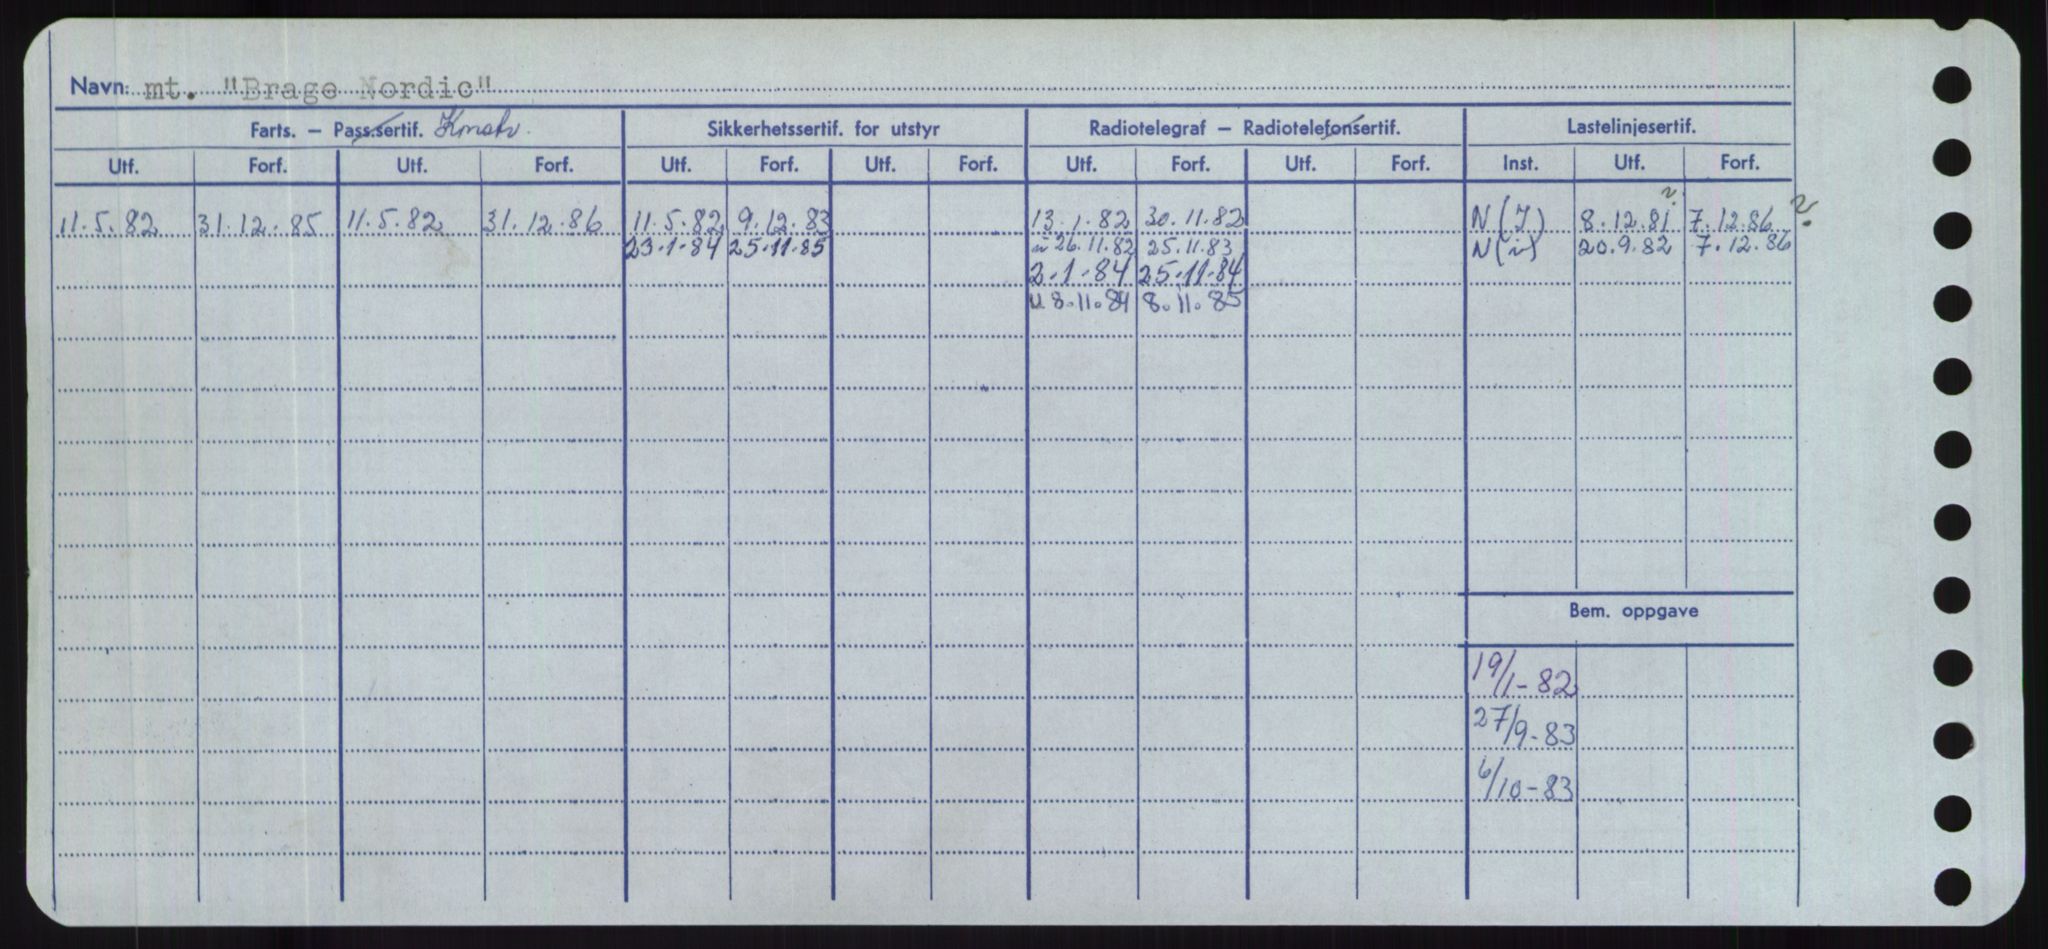 Navn: mt. "Brage Nordic"
Farts. — Pass.sertif. Konstr. Sikkerhetssertif. for utstyr Radiotelegraf — Radiotelefonsertif. Lastelinjesertif.
Utf. Forf. Utf. Forf. Utf. Forf. Utf. Forf. Utf. Forf. Utf. Forf. Inst. Utf. Forf.
11.5.82 31.12.85 11.5.82 31.12.86 11.5.82 9.12.83 13.1.82 30.11.82 N(I) 8.12.81 ? 7.12.86 ?
23-1-84 25-11-85 26.11.82 25.11.83 N(i) 20.9.82 7.12.86
2-1-84 25-11-84
u 8.11.84 8.11.85
Bem. oppgave
19/1-82
27/9-83
6/10-83